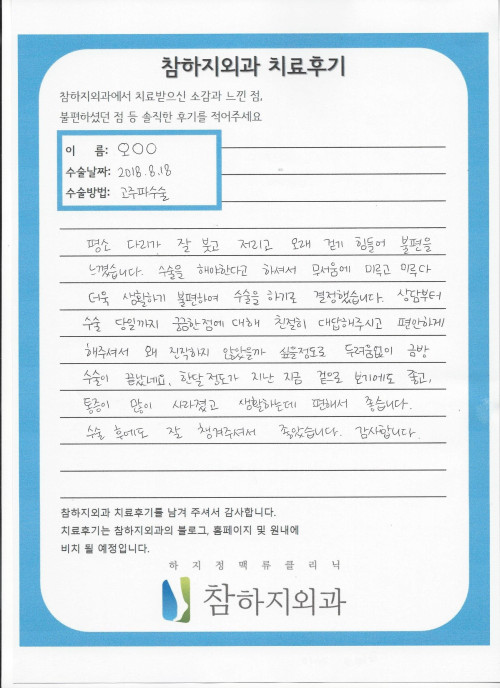 참하지외과 치료후기
참하지외과에서 치료받으신 소감과 느낀 점,
불편하셨던 점 등 솔직한 후기를 적어주세요
이 름: 오○○
수술날짜: 2018.8.18
수술방법: 고주파수술
평소 다리가 잘 붓고 저리고 오래 걷기 힘들어 불편을
느꼈습니다. 수술을 해야한다고 하셔서 무서움에 미루고 미루다
더욱 생활하기 불편하여 수술을 하기로 결정했습니다. 상담부터
수술 당일까지 궁금한점에 대해 친절히 대답해주시고 편안하게
해주셔서 왜 진작하지 않았을까 싶을정도로 두려움없이 금방
수술이 끝났네요, 한달 정도가 지난 지금 겉으로 보기에도 좋고,
통증이 많이 사라졌고 생활하는데 편해서 좋습니다.
수술 후에도 잘 챙겨주셔서 좋았습니다. 감사합니다.
참하지외과 치료후기를 남겨 주셔서 감사합니다.
치료후기는 참하지외과의 블로그, 홈페이지 및 원내에
비치 될 예정입니다.
하지정맥류클리닉
참하지외과